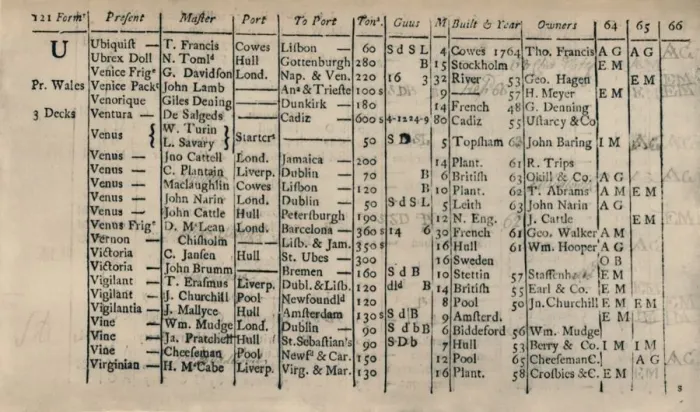 121 Form^r Present Master Port To Port Ton^s. Guns M Built & Year Owners 64 65 66
U Ubiquist — T. Francis Cowes Lisbon — 60 S d S L 4 Cowes 1764 Tho. Francis A G A G
Ubrex Doll N. Tom^d Hull Gottenburgh 280 B 15 Stockholm E M
Venice Frig^e G. Davidson Lond. Nap. & Ven. 220 16 3 32 River 53 Geo. Hagen E M
Pr. Wales Venice Pack^t John Lamb An^a & Trieste 100 s 9 57 H. Meyer E M
Venorique Giles Dening Dunkirk — 180 14 French 48 G. Denning
3 Decks Ventura — De Salgeds Cadiz 600 s 4-1224-9 80 Cadiz 55 Ustarcy & Co
Venus { W. Turin } Starters — 50 S D 5 Topsham 62 John Baring I M
L. Savary
Venus — Jno Cattell Lond. Jamaica — 200 14 Plant. 61 R. Trips
Venus — C. Plantain Liverp. Dublin — 70 B 6 British 63 Okill & Co. A G
Venus — Maclaughlin Cowes Lisbon — 120 B 10 Plant. 62 T. Abrams A M E M
Venus — John Narin Lond. Dublin — 50 S d S L 5 Leith 63 John Narin A G
Venus — John Cattle Hull Petersburgh 190 12 N. Eng. J. Cattle E M
Venus Frig^e D. M^cLean Lond. Barcelona — 360 s 14 6 30 French 61 Geo. Walker A M
Vernon — Chisholm — Lisb. & Jam. 350 s 16 Hull 61 Wm. Hooper A G
Victoria — C. Jansen Hull St. Ubes — 300 16 Sweden O B
Victoria — John Brumm Bremen — 160 S d B 10 Stettin 57 E M
Vigilant — T. Erasmus Liverp. Dubl. & Lisb. 120 dl^d B 14 British 55 Earl & Co. E M
Vigilant — J. Churchill Pool Newfoundl^d 120 8 Pool 50 Jn. Churchill E M E M
Vigilantia — J. Mallyce Hull Amsterdam 130 s S d B 9 Amsterd. E M
Vine — Wm. Mudge Lond. Dublin — 90 S d b B 6 Biddeford 56 Wm. Mudge
Vine — Ja. Pratchett Hull St. Sebastian's 90 S D b 7 Hull 53 Berry & Co. I M I M
Vine — Cheeseman Pool Newf^d & Car. 150 12 Pool 65 Cheeseman C. A G
Virginian — H. M^cCabe Liverp. Virg. & Mar. 130 16 Plant. 58 Crosbies & C. E M